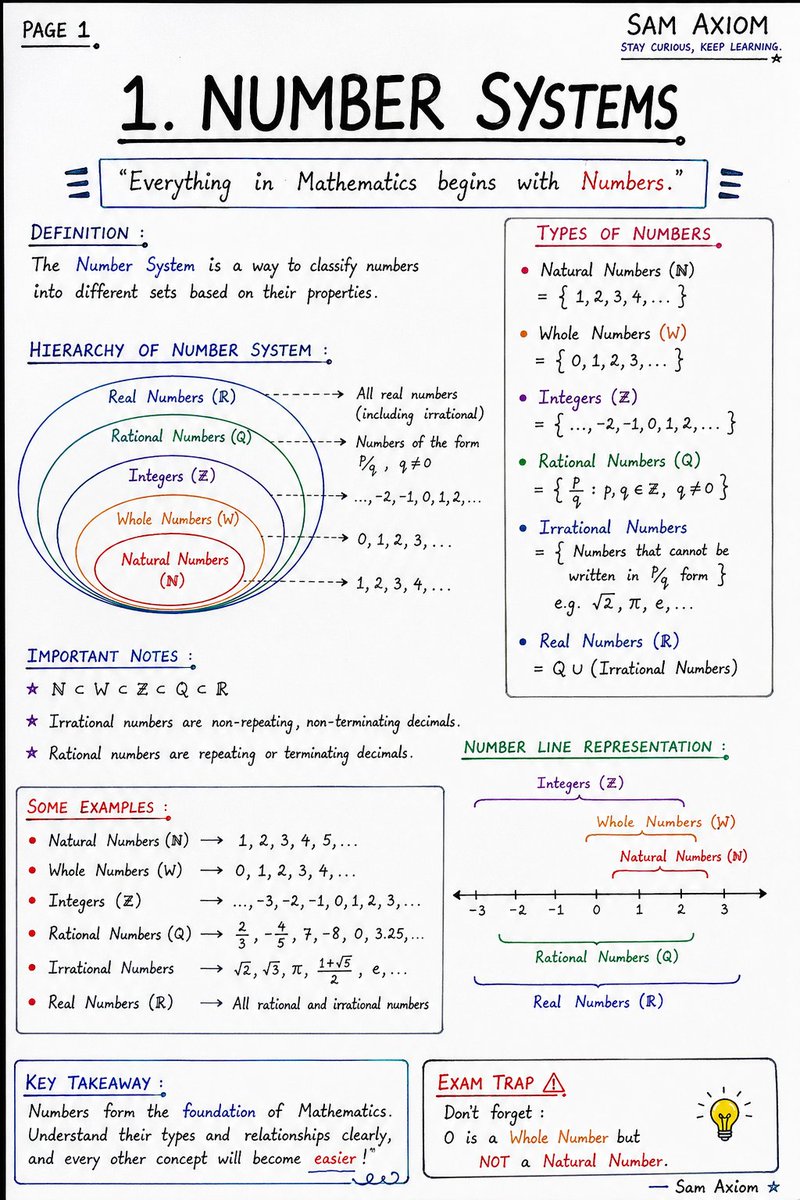 PAGE 1
SAM AXIOM
STAY CURIOUS, KEEP LEARNING.
1. NUMBER SYSTEMS
“Everything in Mathematics begins with Numbers.”
DEFINITION :
The Number System is a way to classify numbers
into different sets based on their properties.
HIERARCHY OF NUMBER SYSTEM :
Real Numbers (ℝ)
Rational Numbers (Q)
Integers (ℤ)
Whole Numbers (W)
Natural Numbers
(ℕ)
All real numbers
(including irrational)
Numbers of the form
p/q , q ≠ 0
..., -2, -1, 0, 1, 2, ...
0, 1, 2, 3, ...
1, 2, 3, 4, ...
TYPES OF NUMBERS
• Natural Numbers (ℕ)
= { 1, 2, 3, 4, ... }
• Whole Numbers (W)
= { 0, 1, 2, 3, ... }
• Integers (ℤ)
= { ..., -2, -1, 0, 1, 2, ... }
• Rational Numbers (Q)
= { p/q : p, q ∈ ℤ, q ≠ 0 }
• Irrational Numbers
= { Numbers that cannot be
written in p/q form }
e.g. √2, π, e, ...
• Real Numbers (ℝ)
= Q ∪ (Irrational Numbers)
IMPORTANT NOTES :
☆ ℕ ⊂ W ⊂ ℤ ⊂ Q ⊂ ℝ
☆ Irrational numbers are non-repeating, non-terminating decimals.
☆ Rational numbers are repeating or terminating decimals.
SOME EXAMPLES :
• Natural Numbers (ℕ) → 1, 2, 3, 4, 5, ...
• Whole Numbers (W) → 0, 1, 2, 3, 4, ...
• Integers (ℤ) → ..., -3, -2, -1, 0, 1, 2, 3, ...
• Rational Numbers (Q) → 2/3, -4/5, 7, -8, 0, 3.25, ...
• Irrational Numbers → √2, √3, π, (1+√5)/2, e, ...
• Real Numbers (ℝ) → All rational and irrational numbers
NUMBER LINE REPRESENTATION :
Integers (ℤ)
Whole Numbers (W)
Natural Numbers (ℕ)
-3 -2 -1 0 1 2 3
Rational Numbers (Q)
Real Numbers (ℝ)
KEY TAKEAWAY :
Numbers form the foundation of Mathematics.
Understand their types and relationships clearly,
and every other concept will become easier !”
EXAM TRAP ⚠
Don't forget :
0 is a Whole Number but
NOT a Natural Number.
— Sam Axiom ☆